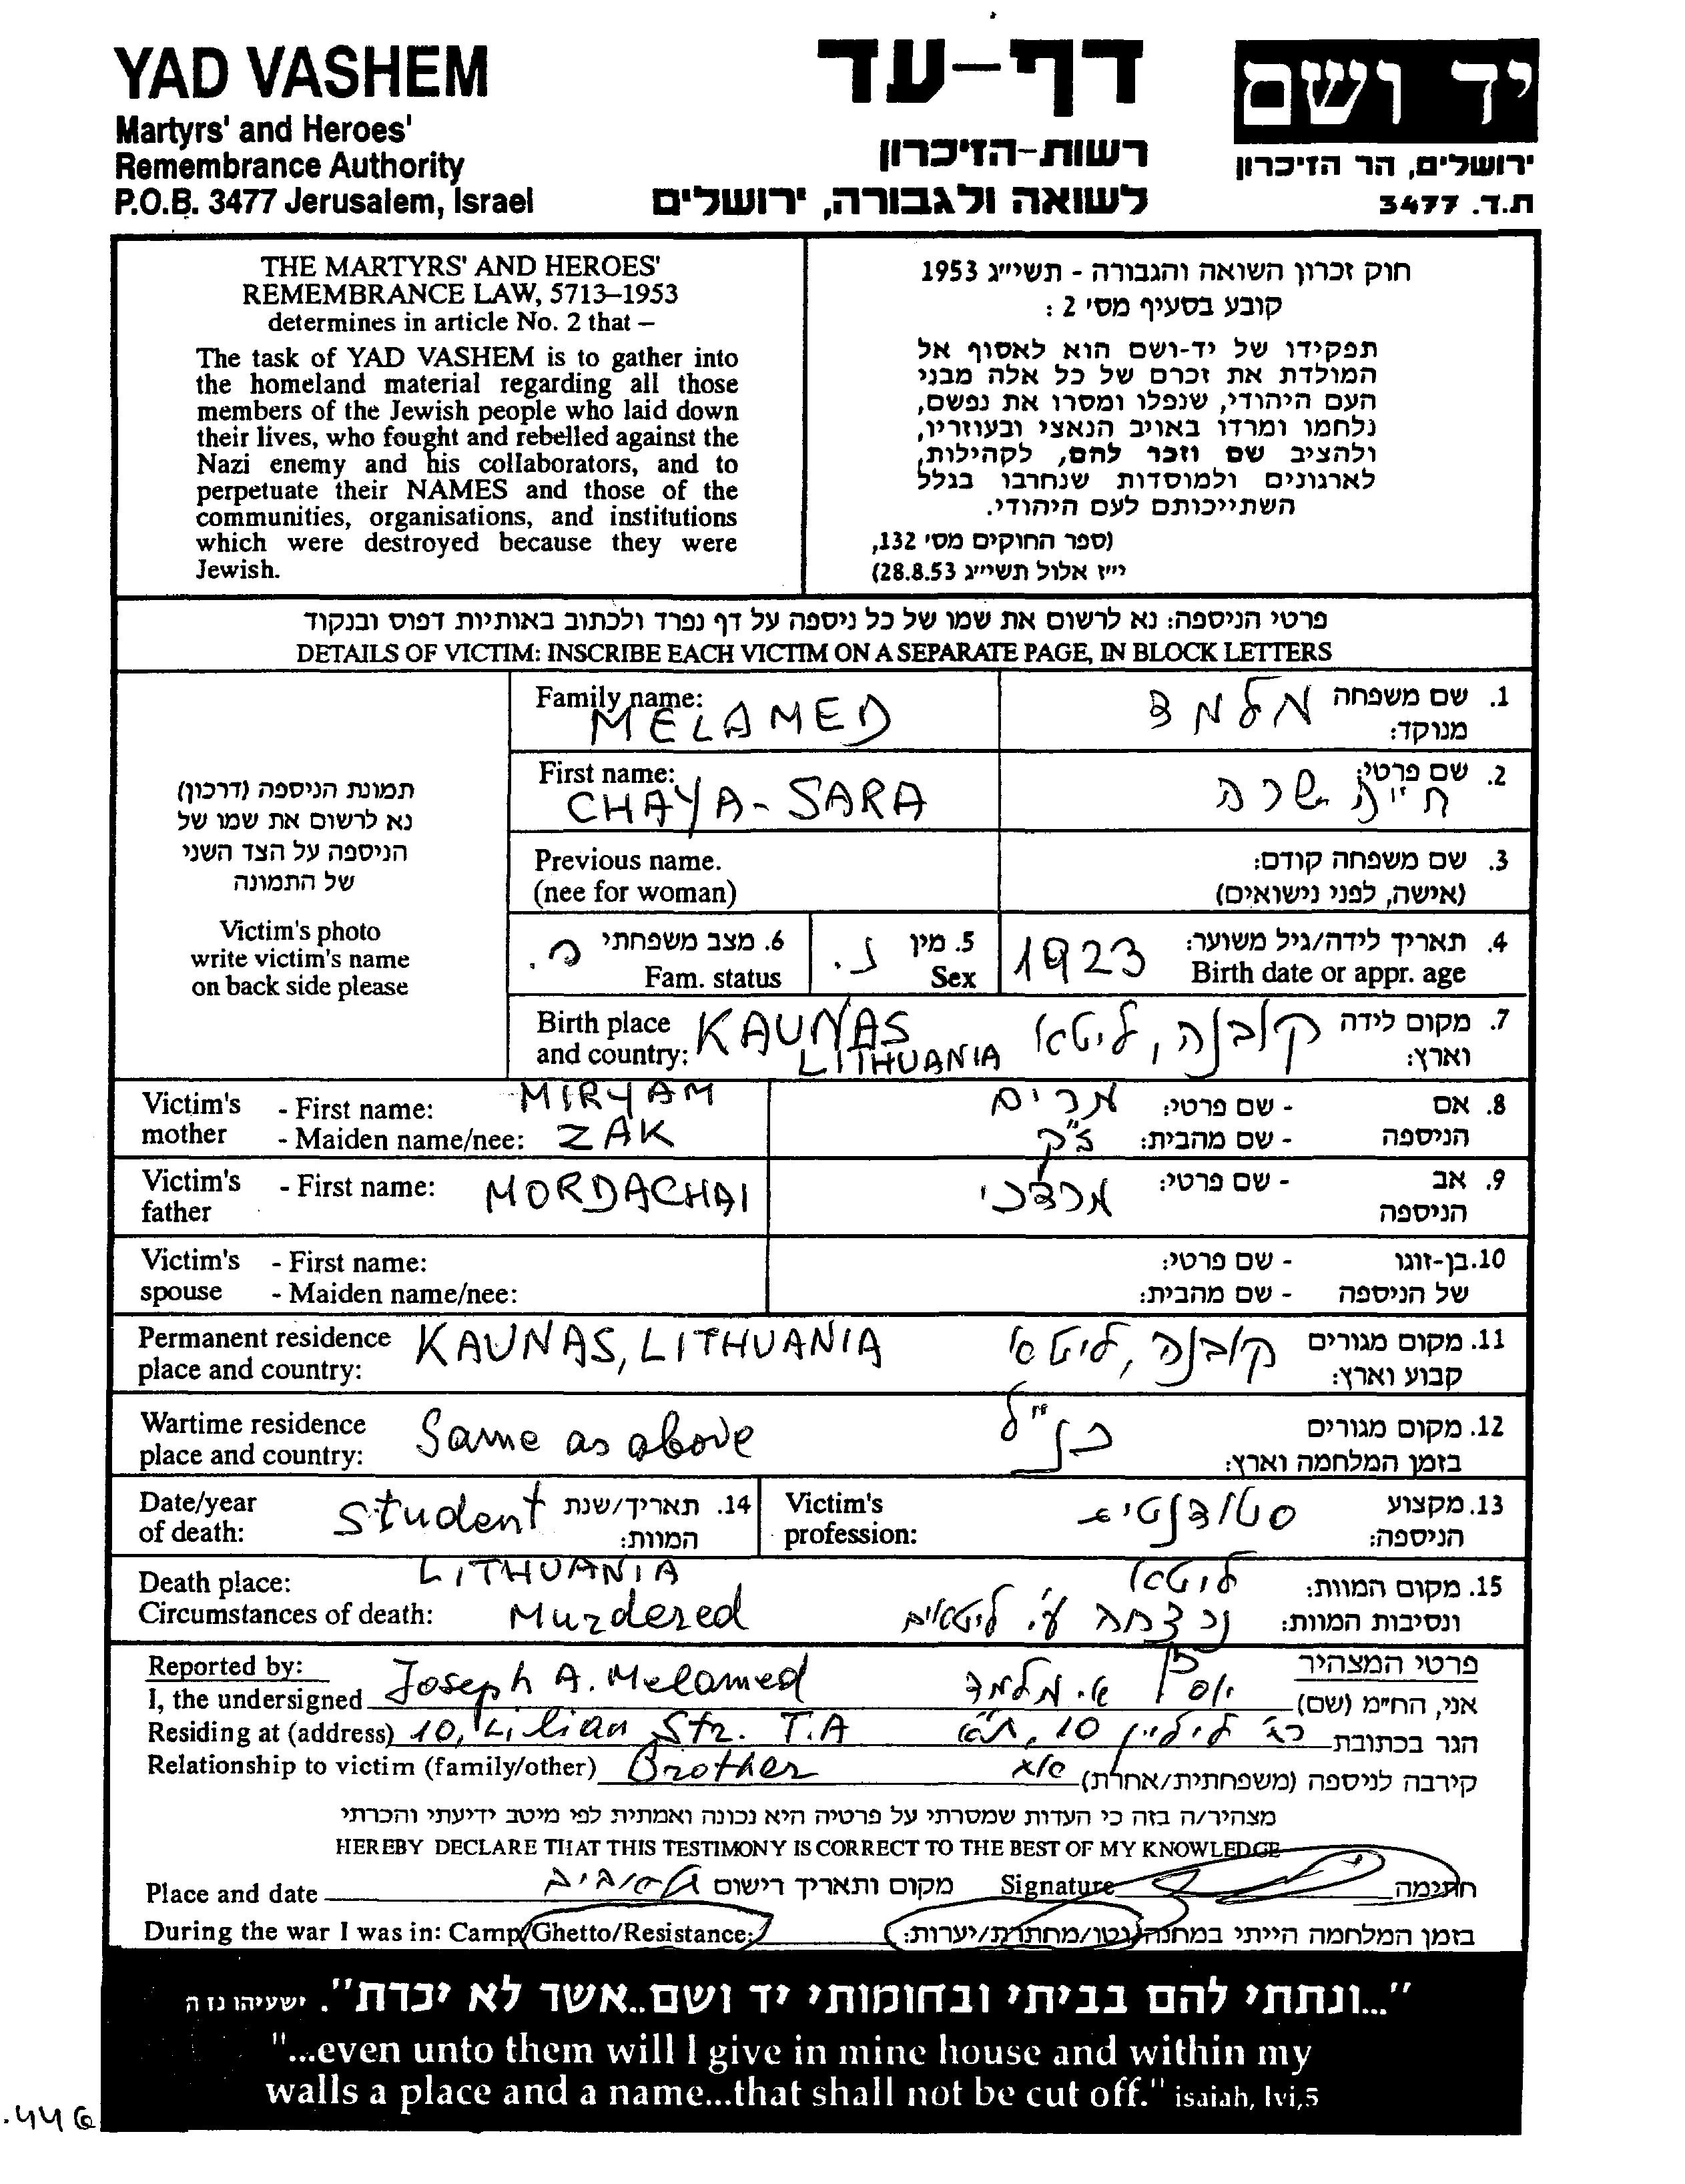 YAD VASHEM
Martyrs' and Heroes'
Remembrance Authority
P.O.B. 3477 Jerusalem, Israel
דף-עד
רשות-הזיכרון
לשואה ולגבורה, ירושלים
יד ושם
ירושלים, הר הזיכרון
ת.ד. 3477
THE MARTYRS' AND HEROES'
REMEMBRANCE LAW, 5713–1953
determines in article No. 2 that –
The task of YAD VASHEM is to gather into
the homeland material regarding all those
members of the Jewish people who laid down
their lives, who fought and rebelled against the
Nazi enemy and his collaborators, and to
perpetuate their NAMES and those of the
communities, organisations, and institutions
which were destroyed because they were
Jewish.
חוק זכרון השואה והגבורה - תשי״ג 1953
קובע בסעיף מס' 2 :
תפקידו של יד-ושם הוא לאסוף אל
המולדת את זכרם של כל אלה מבני
העם היהודי, שנפלו ומסרו את נפשם,
נלחמו ומרדו באויב הנאצי ובעוזריו,
ולהציב שם וזכר להם, לקהילות,
לארגונים ולמוסדות שנחרבו בגלל
השתייכותם לעם היהודי.
(ספר החוקים מס' 132,
י״ז אלול תשי״ג 28.8.53)
פרטי הניספה: נא לרשום את שמו של כל ניספה על דף נפרד ולכתוב באותיות דפוס ובנקוד
DETAILS OF VICTIM: INSCRIBE EACH VICTIM ON A SEPARATE PAGE, IN BLOCK LETTERS
תמונת הניספה (דרכון)
נא לרשום את שמו של
הניספה על הצד השני
של התמונה
Victim's photo
write victim's name
on back side please
Family name: MELAMED
1. שם משפחה מנוקד: מלמד
First name: CHAYA-SARA
2. שם פרטי: חיה שרה
Previous name.
(nee for woman)
3. שם משפחה קודם:
(אישה, לפני נישואים)
4. תאריך לידה/גיל משוער: 1923
Birth date or appr. age
5. מין נ.
Sex
6. מצב משפחתי ר.
Fam. status
Birth place
and country: KAUNAS
LITHUANIA
7. מקום לידה
וארץ: קובנה, ליטא
Victim's mother - First name: MIRYAM
- Maiden name/nee: ZAK
8. אם - שם פרטי: מרים
הניספה - שם מהבית: ז"ק
Victim's father - First name: MORDACHAI
9. אב הניספה - שם פרטי: מרדכי
Victim's spouse - First name:
- Maiden name/nee:
10. בן-זוגו - שם פרטי:
של הניספה - שם מהבית:
Permanent residence
place and country: KAUNAS, LITHUANIA
11. מקום מגורים
קבוע וארץ: קובנה, ליטא
Wartime residence
place and country: Same as above
12. מקום מגורים
בזמן המלחמה וארץ: כנ"ל
Date/year
of death: student
14. תאריך/שנת
המוות:
Victim's
profession:
13. מקצוע
הניספה: סטודנטית
Death place: LITHUANIA
Circumstances of death: Murdered
15. מקום המוות: ליטא
ונסיבות המוות: נרצחה ע"י ליטאים
Reported by:
I, the undersigned Joseph A. Melamed
Residing at (address) 10, Lilian Str. T.A
Relationship to victim (family/other) Brother
פרטי המצהיר
אני, הח״מ (שם) יוסף א. מלמד
הגר בכתובת רח' ליליין 10, ת"א
קירבה לניספה (משפחתית/אחרת) אח
מצהיר/ה בזה כי העדות שמסרתי על פרטיה היא נכונה ואמתית לפי מיטב ידיעתי והכרתי
HEREBY DECLARE THAT THIS TESTIMONY IS CORRECT TO THE BEST OF MY KNOWLEDGE
Place and date תל אביב מקום ותאריך רישום Signature חתימה
During the war I was in: Camp/Ghetto/Resistance:
בזמן המלחמה הייתי במחנה/גטו/מחתרת/יערות:
"...ונתתי להם בביתי ובחומותי יד ושם..אשר לא יכרת". ישעיהו נו ה
"...even unto them will I give in mine house and within my
walls a place and a name...that shall not be cut off." isaiah, lvi,5